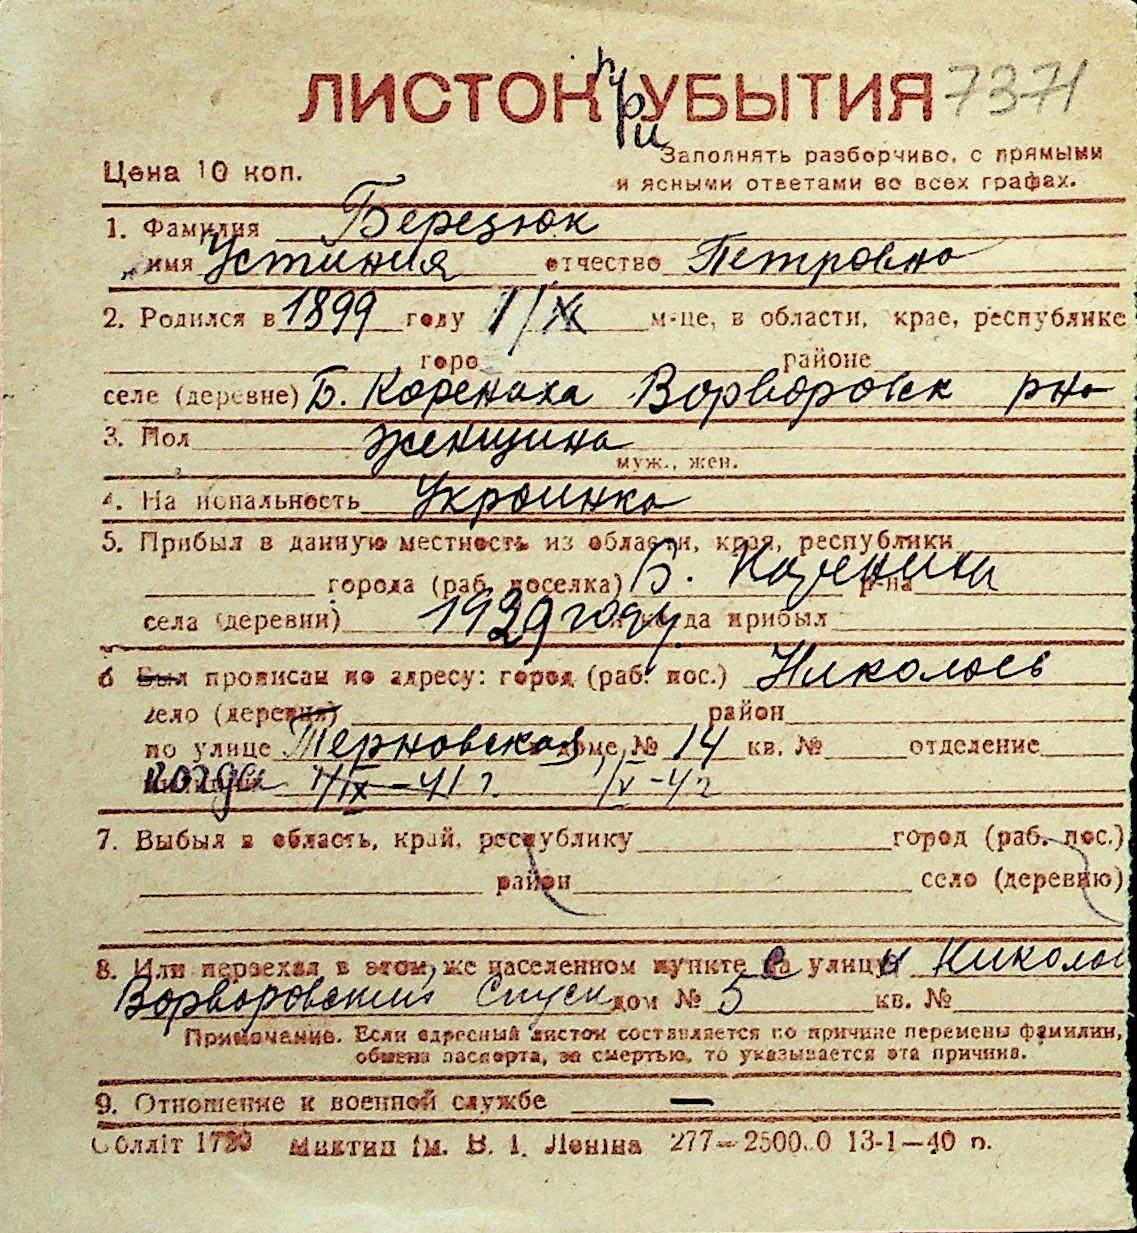 ЛИСТОК при УБЫТИЯ 7371
Цена 10 коп.
Заполнять разборчиво, с прямыми
и ясными ответами во всех графах.
1. Фамилия Березюк
имя Устиния отчество Петровна
2. Родился в 1899 году 1/IX м-це, в области, крае, республике
горо районе
селе (деревне) Б. Коренаха Ворворовск рно
3. Пол женщина
муж., жен.
4. Национальность Украинка
5. Прибыл в данную местность из области, края, республики
города (раб. поселка) Б. р-на
села (деревни) 1929 году да прибыл
6 Был прописан по адресу: город (раб. пос.) Николаев
село (деревня) район
по улице Терновская доме № 14 кв. № отделение
когда 1/IX-41 г. 1/V-4 г
7. Выбыл в область, край, республику город (раб. пос.)
район село (деревню)
8. Или переехал в этом же населенном пункте с улицы Николаев
Ворворовский Спуск дом № 5 кв. №
Примечание. Если адресный листок составляется по причине перемены фамилии,
обмена паспорта, за смертью, то указывается эта причина.
9. Отношение к военной службе —
Облліт 1730 Миктип Ім. В. І. Леніна 277—2500.0 13-1—40 п.